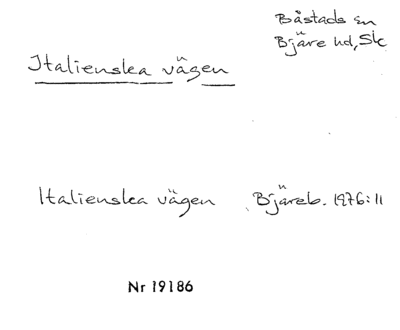 Båstads sn
Bjäre hd, Sk
Italienska vägen
Italienska vägen Bjäreb. 1976:11
Nr 19186